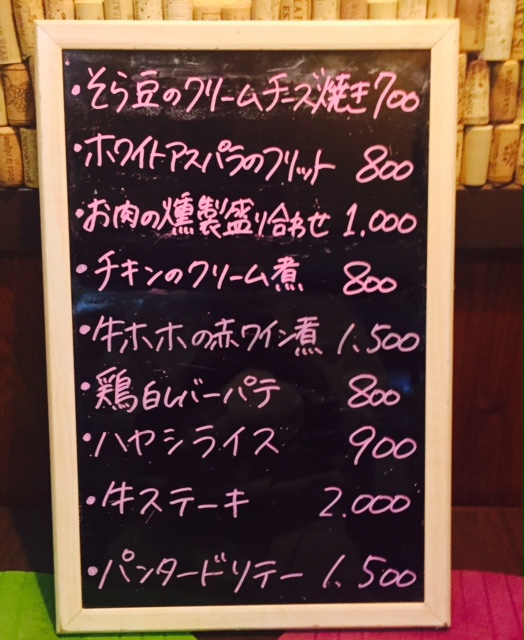 ・そら豆のクリームチーズ焼き 700
・ホワイトアスパラのフリット 800
・お肉の燻製盛り合わせ 1.000
・チキンのクリーム煮 800
・牛ホホの赤ワイン煮 1.500
・鶏白レバーパテ 800
・ハヤシライス 900
・牛ステーキ 2.000
・パンタードリテー 1.500